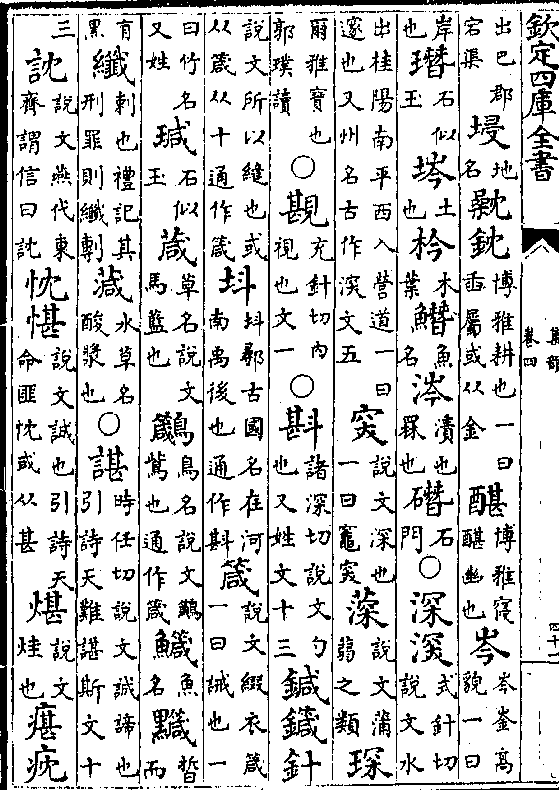 欽定四庫全書
集韻
卷四
出巴郡宕渠 地名 鈂博雅耕也一曰臿屬或从金 博雅寑幽也 岑岑崟高貌一曰
岸也 石似玉 埁土也 枔木葉 鱏魚名 涔漬也罧也 石門 ○深㴱式針切說文水
出桂陽南平西入營道一曰邃也又州名古作㴱文五 突說文深也一曰竈突 蒤說文蒲蒻之類 琛
爾雅寶也郭璞讀 ○充針切內視也文一 ○斟諸深切說文勺也又姓文十三 鍼鑯針
說文所以縫也或从箴从十通作箴 㘰㘰鄩古國名在河南禹後也通作斟 箴說文綴衣箴一曰誡也一
曰竹名又姓 瑊石似玉 葴草名說文馬藍也 鳥名說文鴜也通作箴 鱵魚名 晳而
有黑 纖刺也禮記其刑罪則纖剸 水草名酸漿也 ○諶時任切說文誠諦也引詩天難諶斯文十
三 訦說文燕代東齊謂信曰訦 忱愖說文誠也引詩天命匪忱或从甚 煁說文烓也 㽎